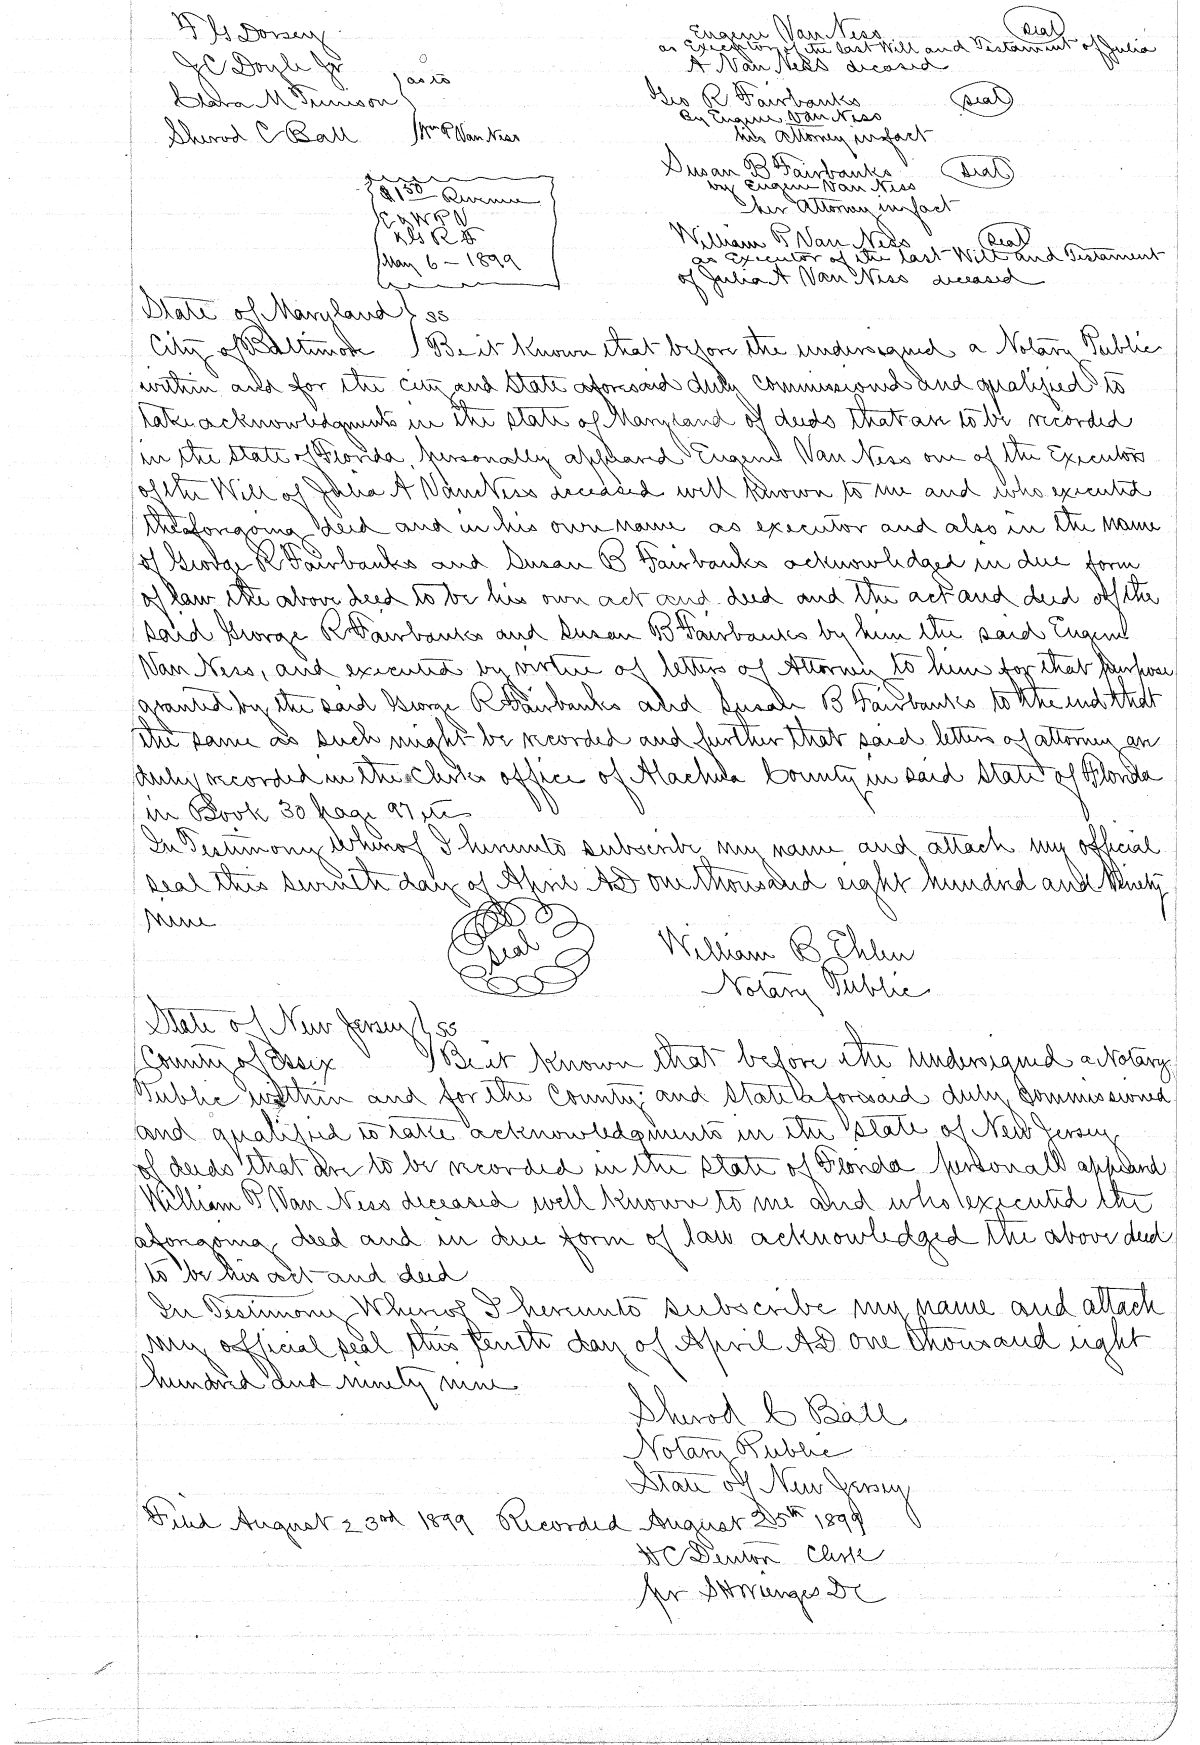 F G Dorsey
J C Doyle Jr
Clara M Tunison
Sherod C Ball
as to
Wm P Van Ness
Eugene Van Ness seal
as Executor of the last Will and Testament of Julia
A Van Ness deceased
Geo R Fairbanks seal
By Eugene Van Ness
his Attorney in fact
Susan B Fairbanks seal
by Eugene Van Ness
her Attorney in fact
William P Van Ness seal
as Executor of the last Will and Testament
of Julia A Van Ness deceased
$1.50 Revenue
E & W P V N
& G R F
May 6 - 1899
State of Maryland } ss
City of Baltimore } Be it known that before the undersigned a Notary Public
within and for the city and State aforesaid duly commissioned and qualified to
take acknowledgments in the State of Maryland of deeds that are to be recorded
in the State of Florida, personally appeared Eugene Van Ness one of the Executors
of the Will of Julia A Van Ness deceased well known to me and who executed
the aforegoing deed and in his own name as executor and also in the name
of George R Fairbanks and Susan B Fairbanks acknowledged in due form
of law the above deed to be his own act and deed and the act and deed of the
said George R Fairbanks and Susan B Fairbanks by him the said Eugene
Van Ness, and executed by virtue of letters of Attorney to him for that purpose
granted by the said George R Fairbanks and Susan B Fairbanks to the end that
the same as such might be recorded and further that said letters of attorney are
duly recorded in the Clerks office of Alachua County in said State of Florida
in Book 30 page 97 etc
In Testimony Whereof I hereunto subscribe my name and attach my official
seal this seventh day of April AD one thousand eight hundred and Ninety
nine
seal
William B Ehlen
Notary Public
State of New Jersey } ss
County of Essex } Be it known that before the undersigned a Notary
Public within and for the County and State aforesaid duly commissioned
and qualified to take acknowledgments in the State of New Jersey
of deeds that are to be recorded in the State of Florida personall appeared
William P Van Ness deceased well known to me and who executed the
aforegoing deed and in due form of law acknowledged the above deed
to be his act and deed
In Testimony Whereof I hereunto subscribe my name and attach
my official seal this tenth day of April AD one thousand eight
hundred and ninety nine
Sherod C Ball
Notary Public
State of New Jersey
Filed August 23rd 1899 Recorded August 25th 1899
H C Denton Clerk
per S H Wienges DC